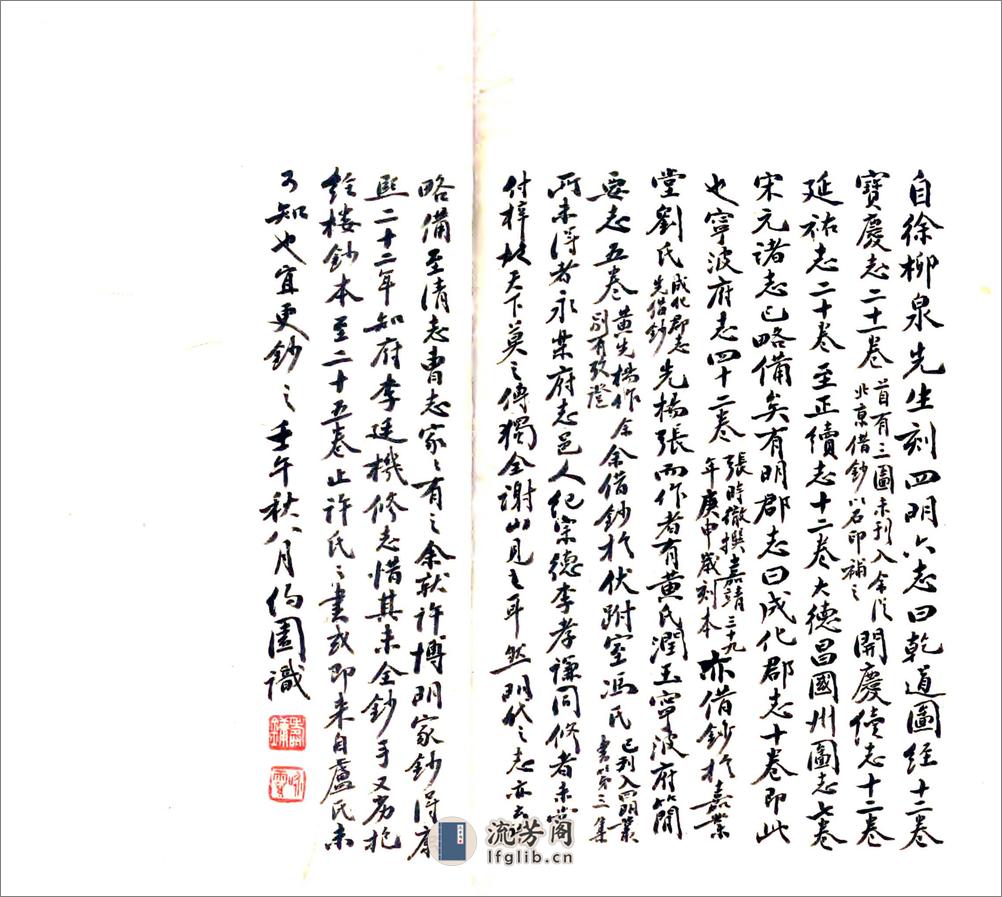 自徐柳泉先生刻四明六志曰乾道圖經十二卷
寶慶志二十一卷首有三圖未刊入余從北京借鈔以石印補之開慶續志十二卷
延祐志二十卷至正續志十二卷大德昌國州圖志七卷
宋元諸志已略備矣有明郡志曰成化郡志十卷即此
也寧波府志四十二卷張時徹撰嘉靖三十九年庚申歲刻本亦借鈔於嘉業
堂劉氏成化郡志先借鈔先楊張而作者有黃氏潤玉寧波府簡
要志五卷黃先楊作余別有攷證余借鈔於伏跗室馮氏已刊入四明叢書第三集
所未得者永樂府志邑人紀宗德李孝謙同修者未嘗
付梓故天下莫之傳獨全謝山見之耳然明代之志亦云
略備至清志曹志家家有之余就許博明家鈔得康
熙二十二年知府李廷機修志惜其未全鈔手又劣抱
經樓鈔本至二十五卷止許氏之書或即來自盧氏未
可知也宜更鈔之壬午秋八月約園識
壽鏞
詠霓
流芳阁
lfglib.cn